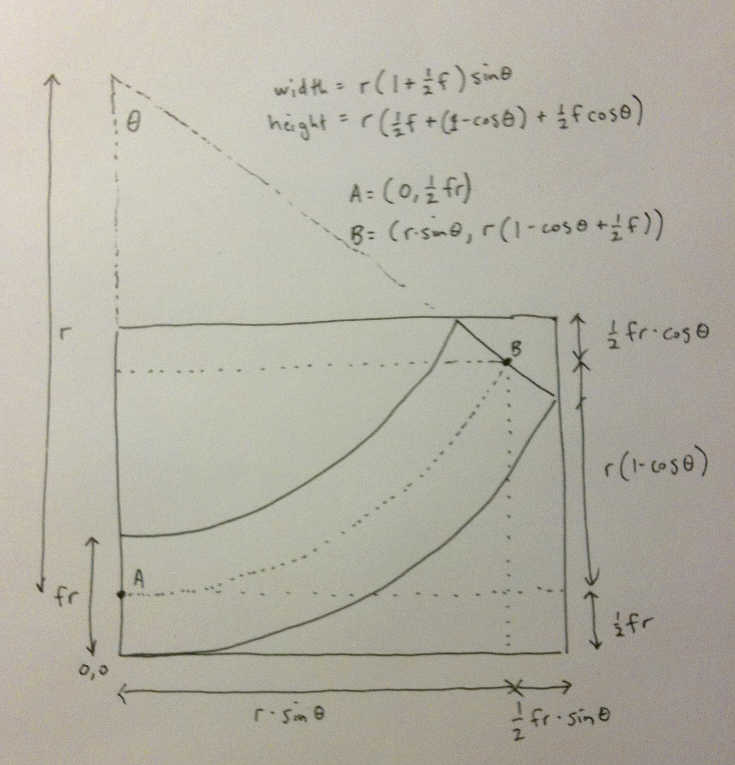 width = r(1+½f)sinθ
height = r(½f+(1-cosθ)+½fcosθ)
θ
A=(0,½fr)
B=(r·sinθ, r(1-cosθ+½f))
r
½fr·cosθ
B
r(1-cosθ)
A
fr
½fr
0,0
r·sinθ
½fr·sinθ